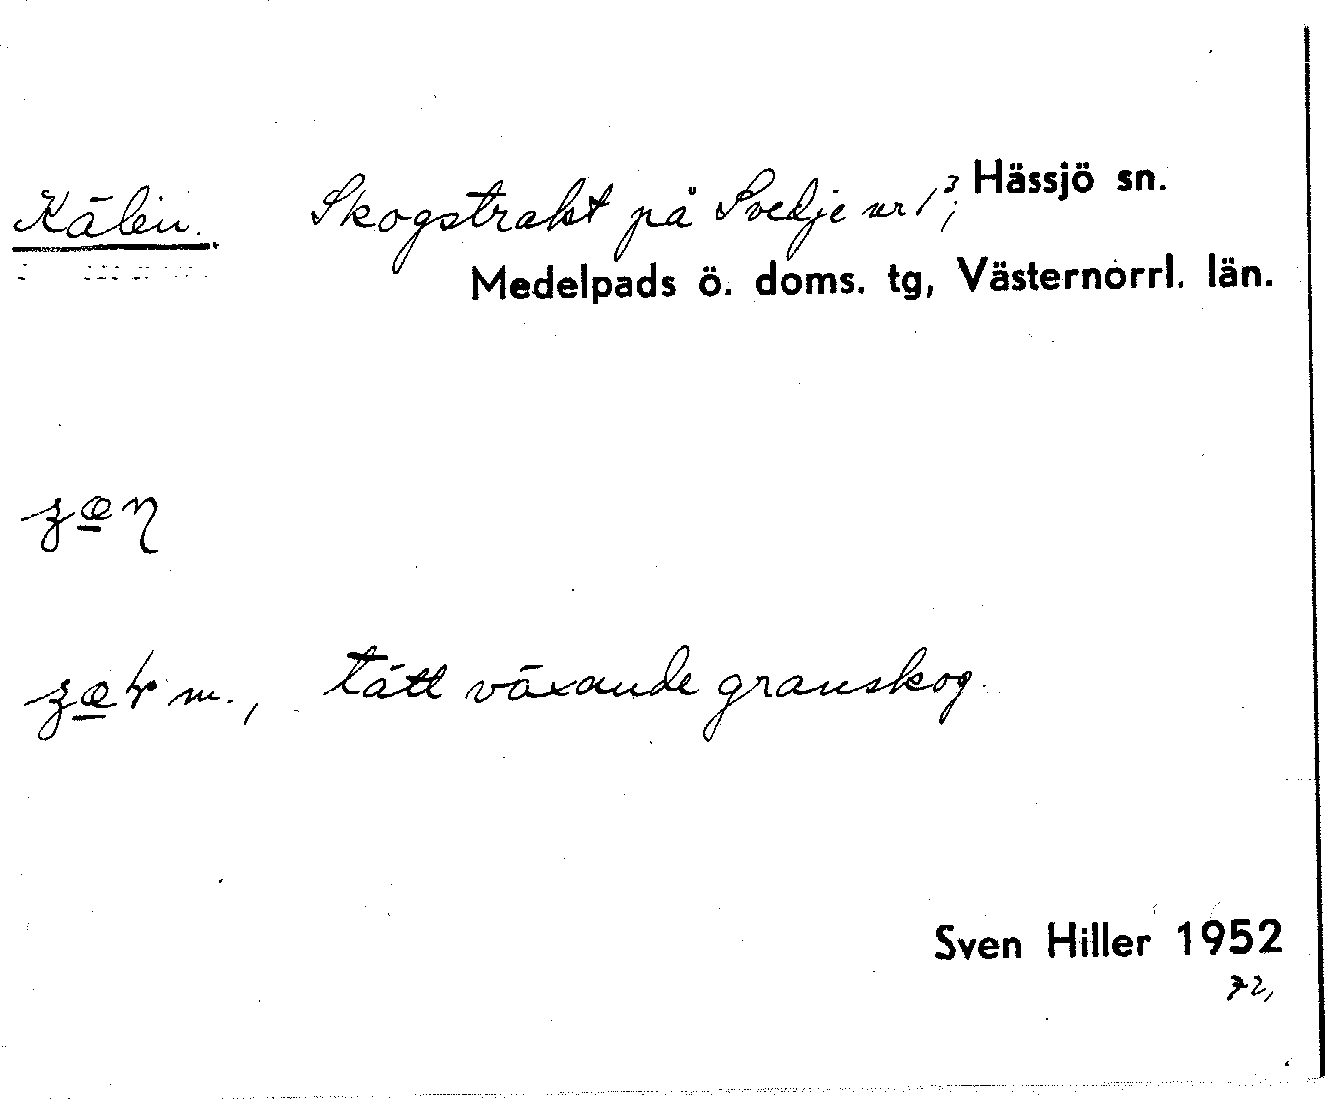 Kälen. Skogstrakt på Svedje nr 1³; Hässjö sn.
Medelpads ö. doms. tg, Västernorrl. län.
m., tätt växande granskog.
Sven Hiller 1952